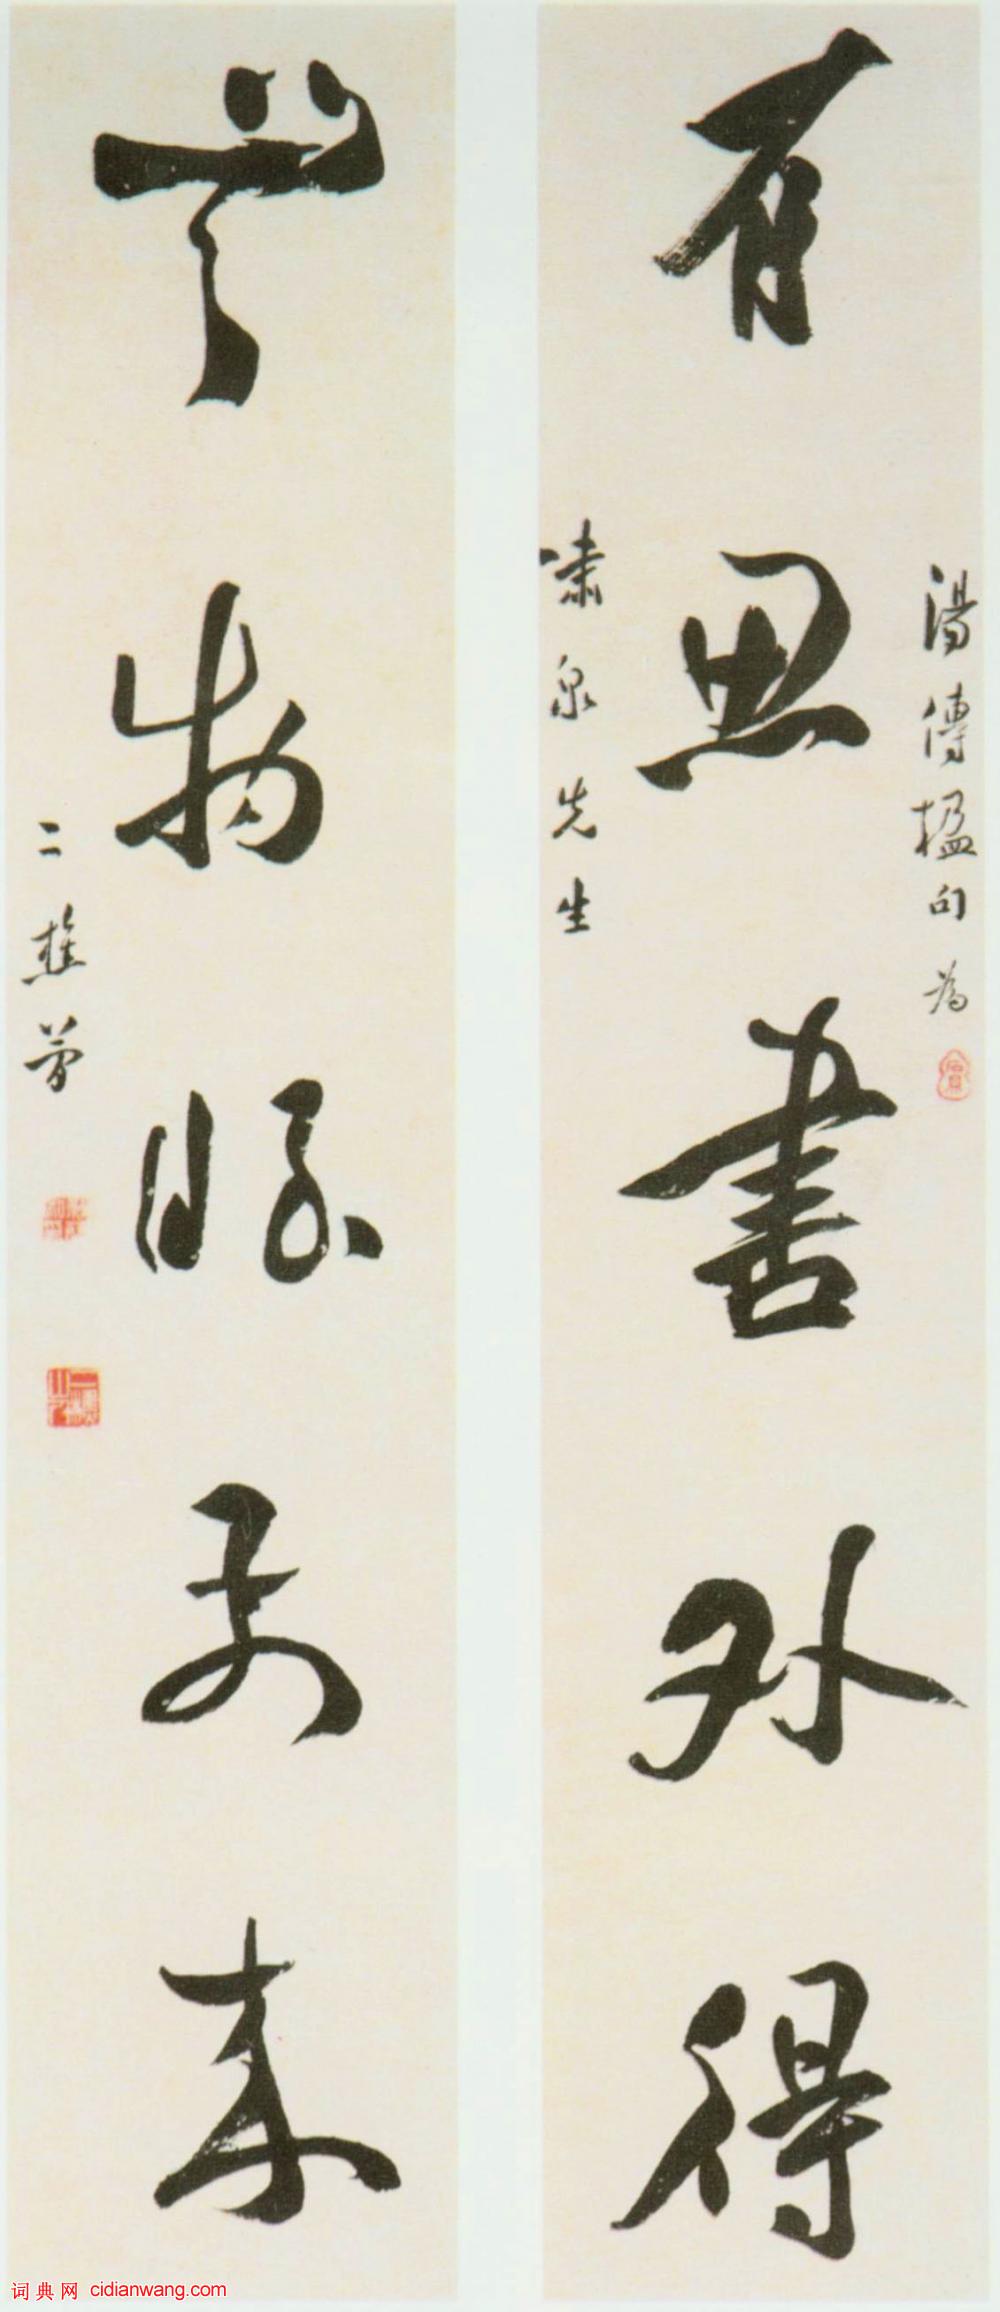 湯傳楹句為
有思書外得
嘯泉先生
無物眼來
二樵簡
词典网 cidianwang.com